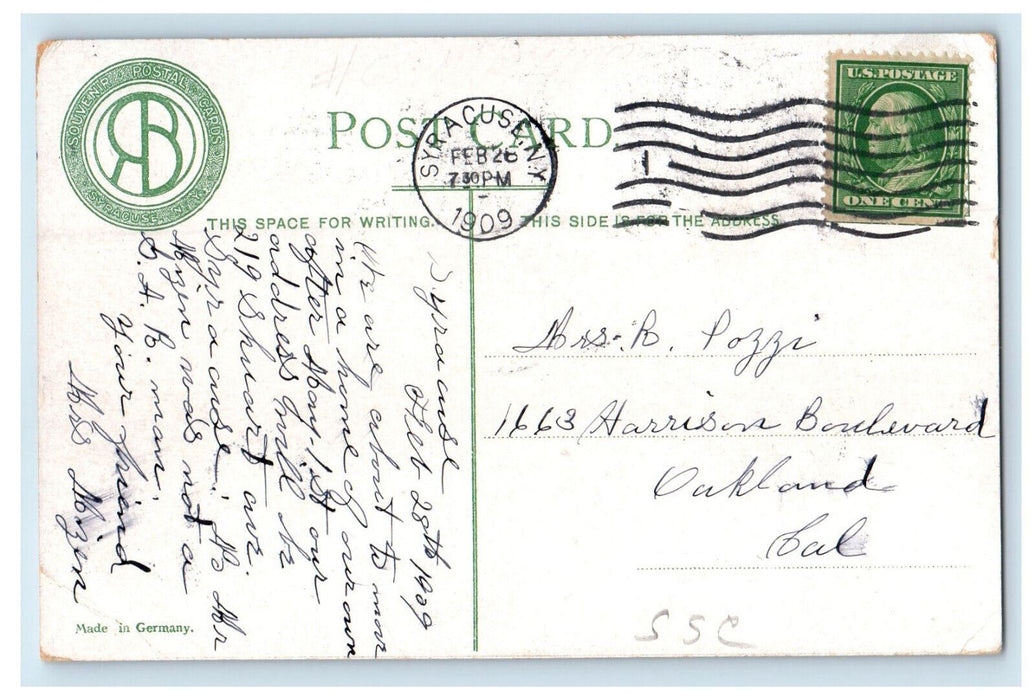 SOUVENIR POSTAL CARDS
SYRACUSE, N.Y.
POST CARD.
SYRACUSE, N.Y.
FEB 26
7 30 PM
1909
1
U.S. POSTAGE
ONE CENT
THIS SPACE FOR WRITING.
THIS SIDE IS FOR THE ADDRESS.
Syracuse
Feb 28th 1909
We are about to move
in a home of our own
after May, 1st our
address will be
219 Stuart ave.
Syracuse. No Mr
Mizen was not a
G. A. R. man.
your friend
Mrs Mizen
Mrs. R. Pozzi
1663 Harrison Boulevard
Oakland
Cal
SSC
Made in Germany.